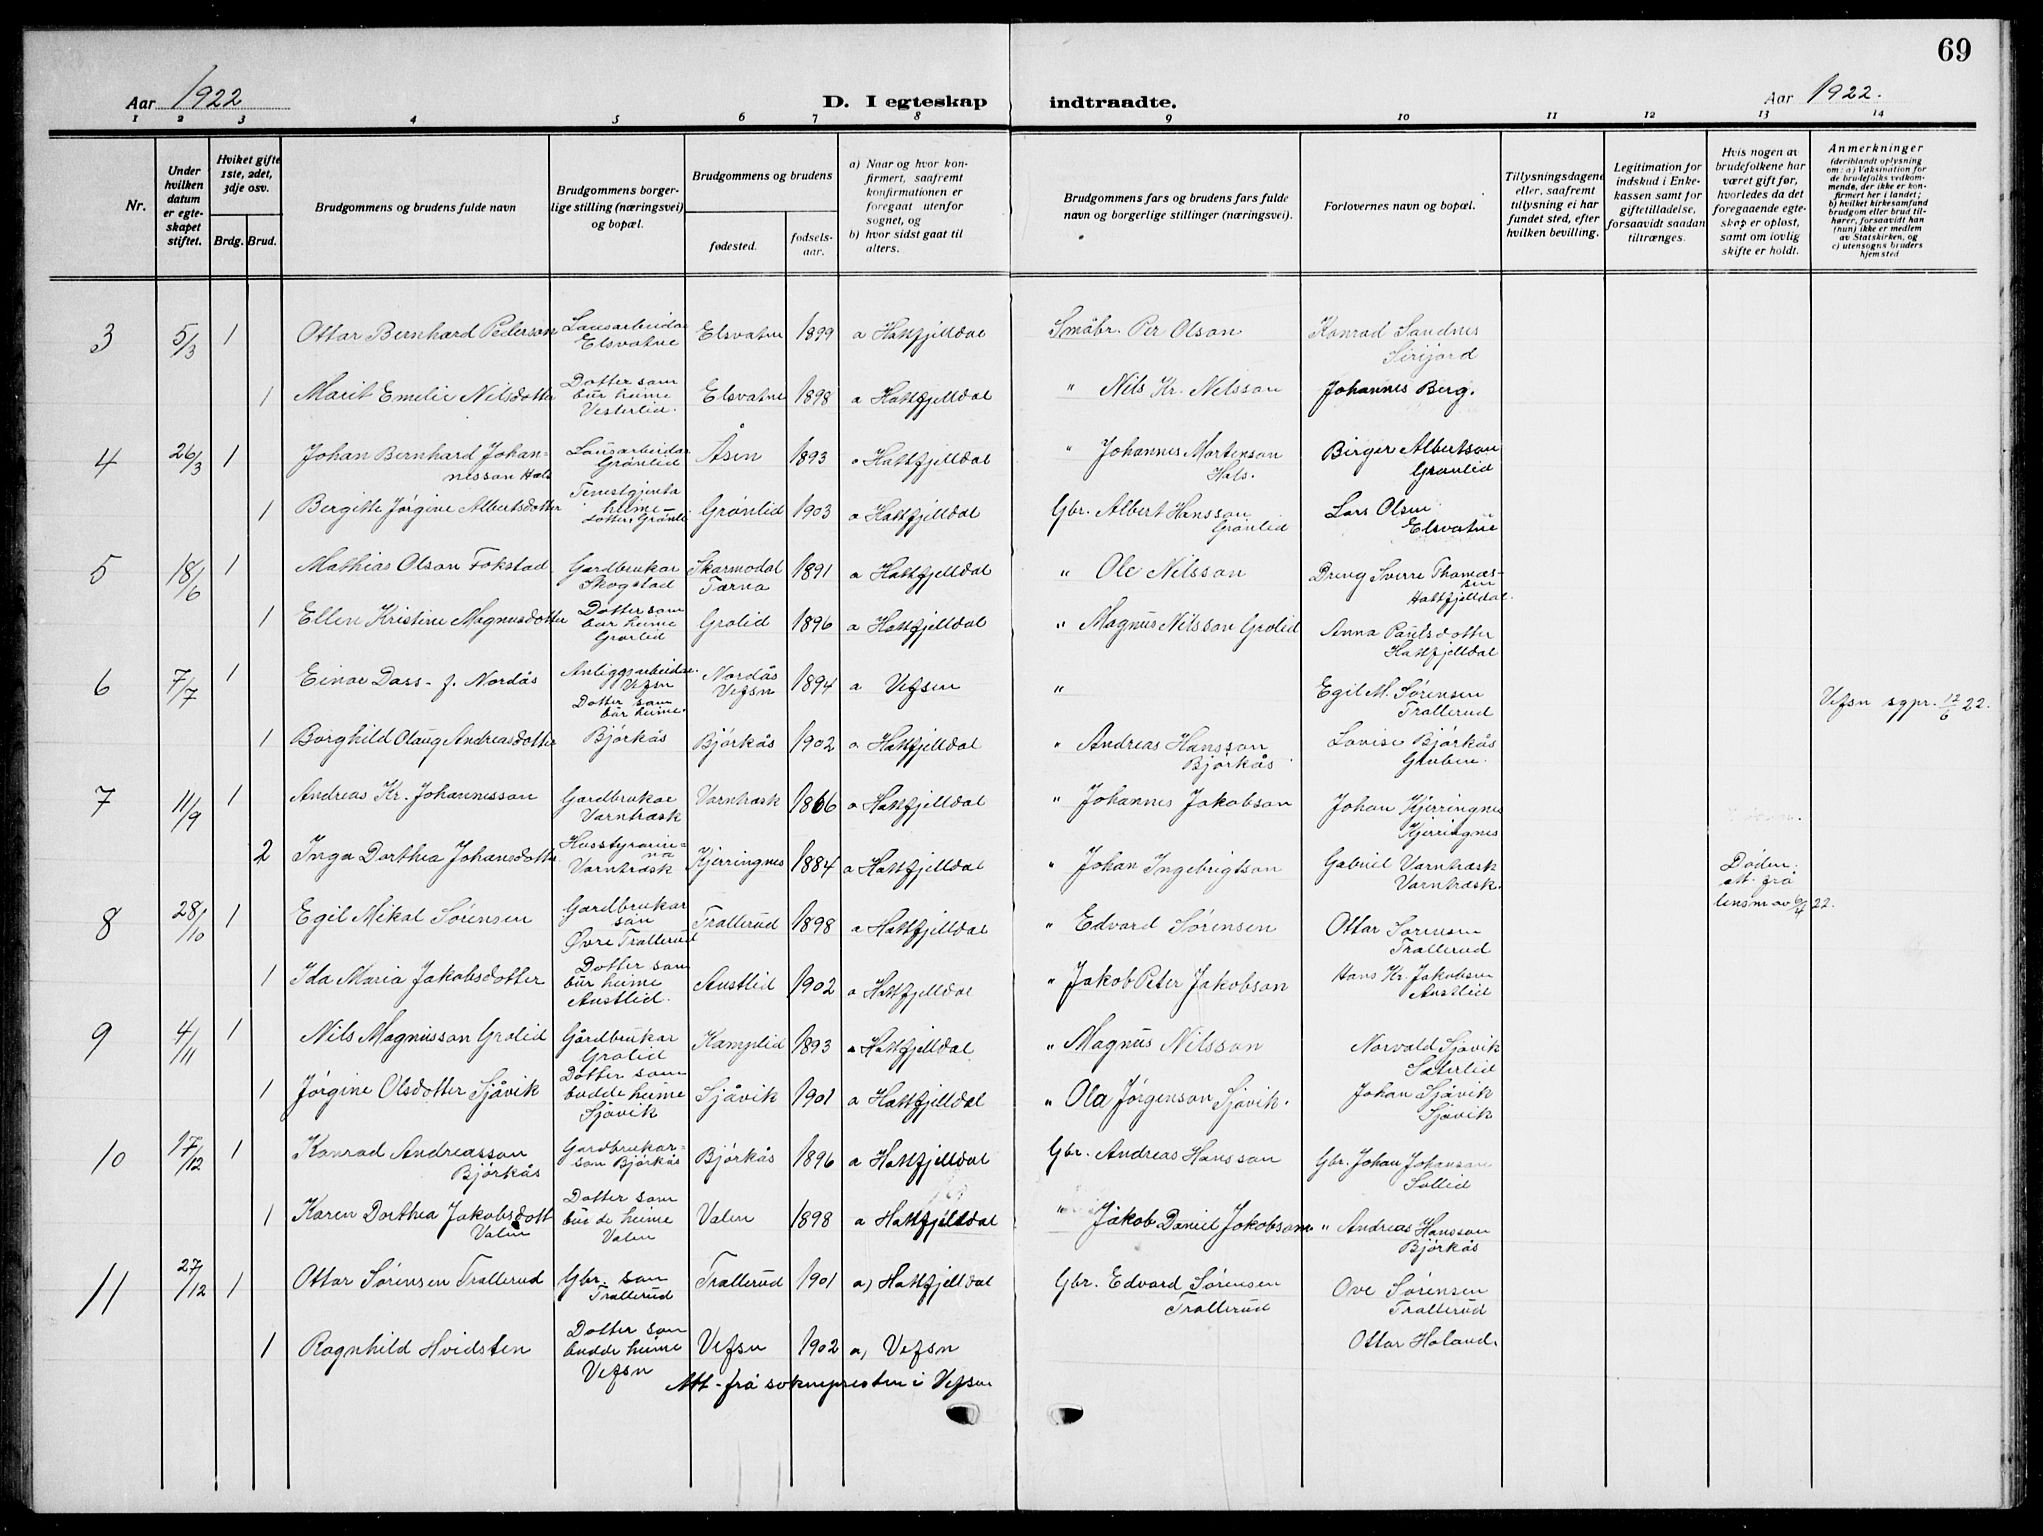 69
Aar 1922
D. I egteskap indtraadte.
Aar 1922.
1 2 3 4 5 6 7 8 9 10 11 12 13 14
Nr.
Under hvilken datum er egteskapet stiftet.
Hvilket gifte 1ste, 2det, 3dje osv.
Brdg. Brud.
Brudgommens og brudens fulde navn
Brudgommens borgerlige stilling (næringsvei) og bopæl.
Brudgommens og brudens
fødested. fødselsaar.
a) Naar og hvor konfirmert, saafremt konfirmationen er foregaat utenfor sognet, og
b) hvor sidst gaat til alters.
Brudgommens fars og brudens fars fulde navn og borgerlige stillinger (næringsvei).
Forlovernes navn og bopæl.
Tillysningsdagene eller, saafremt tillysning ei har fundet sted, efter hvilken bevilling.
Legitimation for indskud i Enkekassen samt for giftetilladelse, forsaavidt saadan tiltrænges.
Hvis nogen av brudefolkene har været gift før, hvorledes da det foregaaende egteskap er opløst, samt om lovlig skifte er holdt.
Anmerkninger
(deriblandt oplysning om: a) Vaksination for de brudefolks vedkommende, der ikke er konfirmert her i landet; b) hvilket kirkesamfund brudgom eller brud tilhører, forsaavidt han (hun) ikke er medlem av Statskirken, og c) utensogns bruders hjemsted
3 5/3 1 Ottar Bernhard Pederson Lausarbeidar Elsvatne Elsvatne 1899 a Hattfjelldal Småbr. Per Olson Konrad Sandnes Sirijord
1 Marit Emelie Nilsdotter Dotter som bur heime Vesterlid. Elsvatne 1898 a Hattfjelldal " Nils Kr. Nilsson Johannes Berg.
4 26/3 1 Johan Bernhard Johannesson Hals Lausarbeidar Grønlid Åsen 1893 a Hattfjelldal " Johannes Mortenson Hals. Birger Albertson Grønlid
1 Bergitte Jørgine Albertsdotter Tenestgjenta heimedotter Grønli. Grønlid 1903 a Hattfjelldal Gbr. Albert Hansson Grønlid Lars Olsen Elsvatne
5 18/6 1 Mathias Olson Fokstad Gardbrukar Skogstad Skarmodal Tærna 1891 a Hattfjelldal " Ole Nilsson Dreng Sverre Thomassen Hattfjelldal.
1 Ellen Kristine Magnusdotter Dotter som bur heime Grølid Grølid 1896 a Hattfjelldal " Magnus Nilsson Grølid Anna Paulsdotter Hattfjelldal
6 7/7 1 Einar Dass - f. Nordås Anleggsarbeidar Vefsn Nordås Vefsn 1894 a Vefsen " Egil M. Sørensen Trallerud Vefsn sgpr. 12/6 22.
1 Borghild Olaug Andreasdotter Dotter som bur heime. Bjørkås Bjørkås 1902 a Hattfjelldal " Andreas Hansson Bjørkås Lovise Bjørkås Gruben.
7 11/9 1 Andreas Kr. Johannesson Gardbrukar Varntræsk Varntræsk 1866 a Hattfjelldal " Johannes Jakobson Johan Kjerringnes Kjerringnes
2 Inga Dorthea Johansdotter Varntræsk Kjerringnes 1884 a Hattfjelldal " Johan Ingebrigtson Gabriel Varntræsk Varntræsk. Døden. att. frå lensm av 6/4 22.
8 28/10 1 Egil Mikal Sørensen Gardbrukarson Øvre Trallerud Trallerud 1898 a Hattfjelldal " Edvard Sørensen Ottar Sørensen Trallerud
1 Ida Maria Jakobsdotter Dotter som bur heime Austlid. Austlid 1902 a Hattfjelldal " Jakob Peter Jakobson Hans Kr. Jakobsen Austlid
9 4/11 1 Nils Magnusson Grølid Gårdbrukar Grølid Kamplid 1893 a Hattfjelldal " Magnus Nilsson Norvald Sjåvik Sæterlid
1 Jørgine Olsdotter Sjåvik Dotter som budde heime Sjåvik Sjåvik 1901 a Hattfjelldal " Ola Jørgenson Sjåvik. Johan Sjåvik Sjåvik
10 17/12 1 Konrad Andreasson Bjørkås Gardbrukarson Bjørkås Bjørkås 1896 a Hattfjelldal Gbr. Andreas Hansson Gbr. Johan Johanson Sollid
1 Karen Dorthea Jakobsdott Valen Dotter som budde heime Valen Valen 1898 a Hattfjelldal " Jakob Daniel Jakobson " Andreas Hansson Bjørkås
11 27/12 1 Ottar Sørensen Trallerud Gbr. son Trallerud Trallerud 1901 a) Hattfjelldal Gbr. Edvard Sørensen Trallerud Ove Sørensen Trallerud
1 Ragnhild Hvidsten Dotter som budde heime Vefsn Vefsn 1902 a, Vefsn Ottar Haland.
Att. frå soknepresten i Vefsn